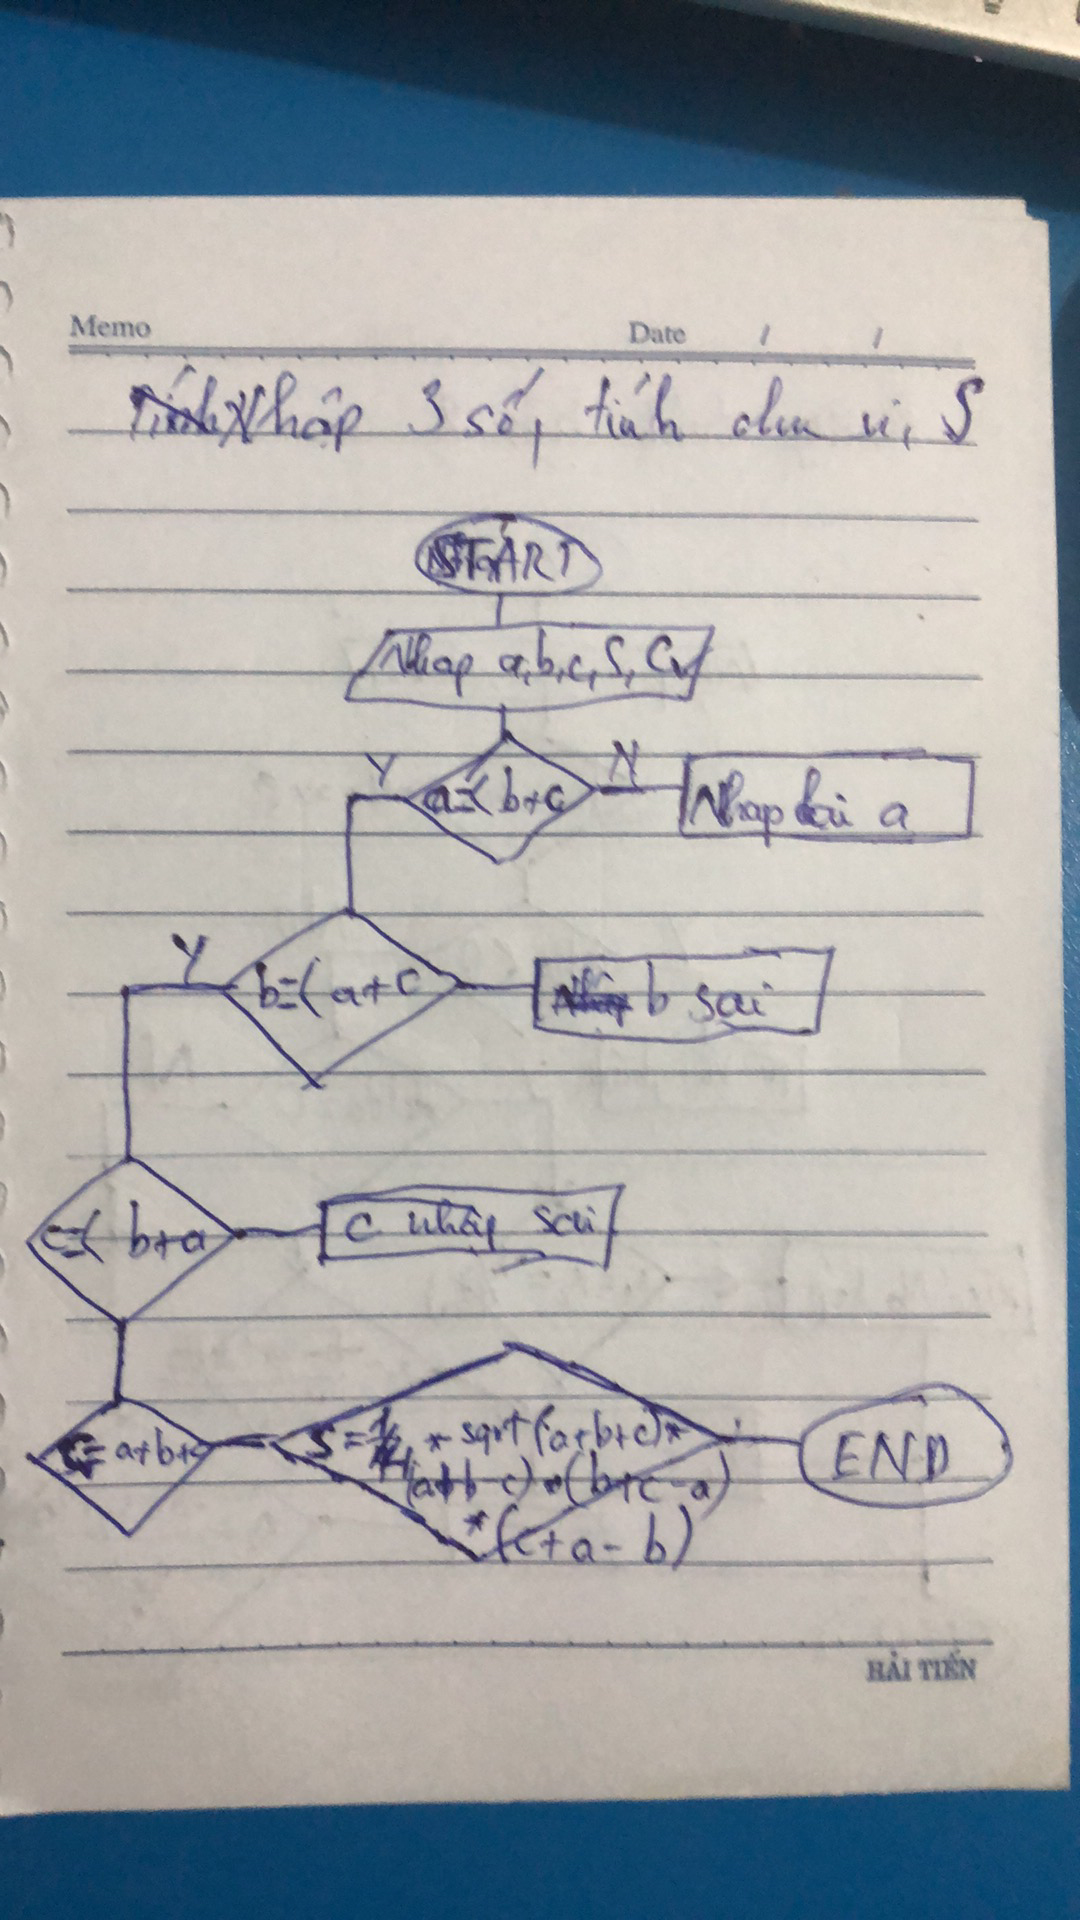 Memo Date / /
Nhập 3 số, tính chu vi, S
START
Nhap a,b,c,S,Cv
Y a=< b+c N Nhap lai a
Y b=< a+c b sai
c=< b+a c nhập sai
= a+b+c S = 1/4 * sqrt (a+b+c)* END
(a+b-c) * (b+c-a)
* (c+a-b)
HẢI TIẾN